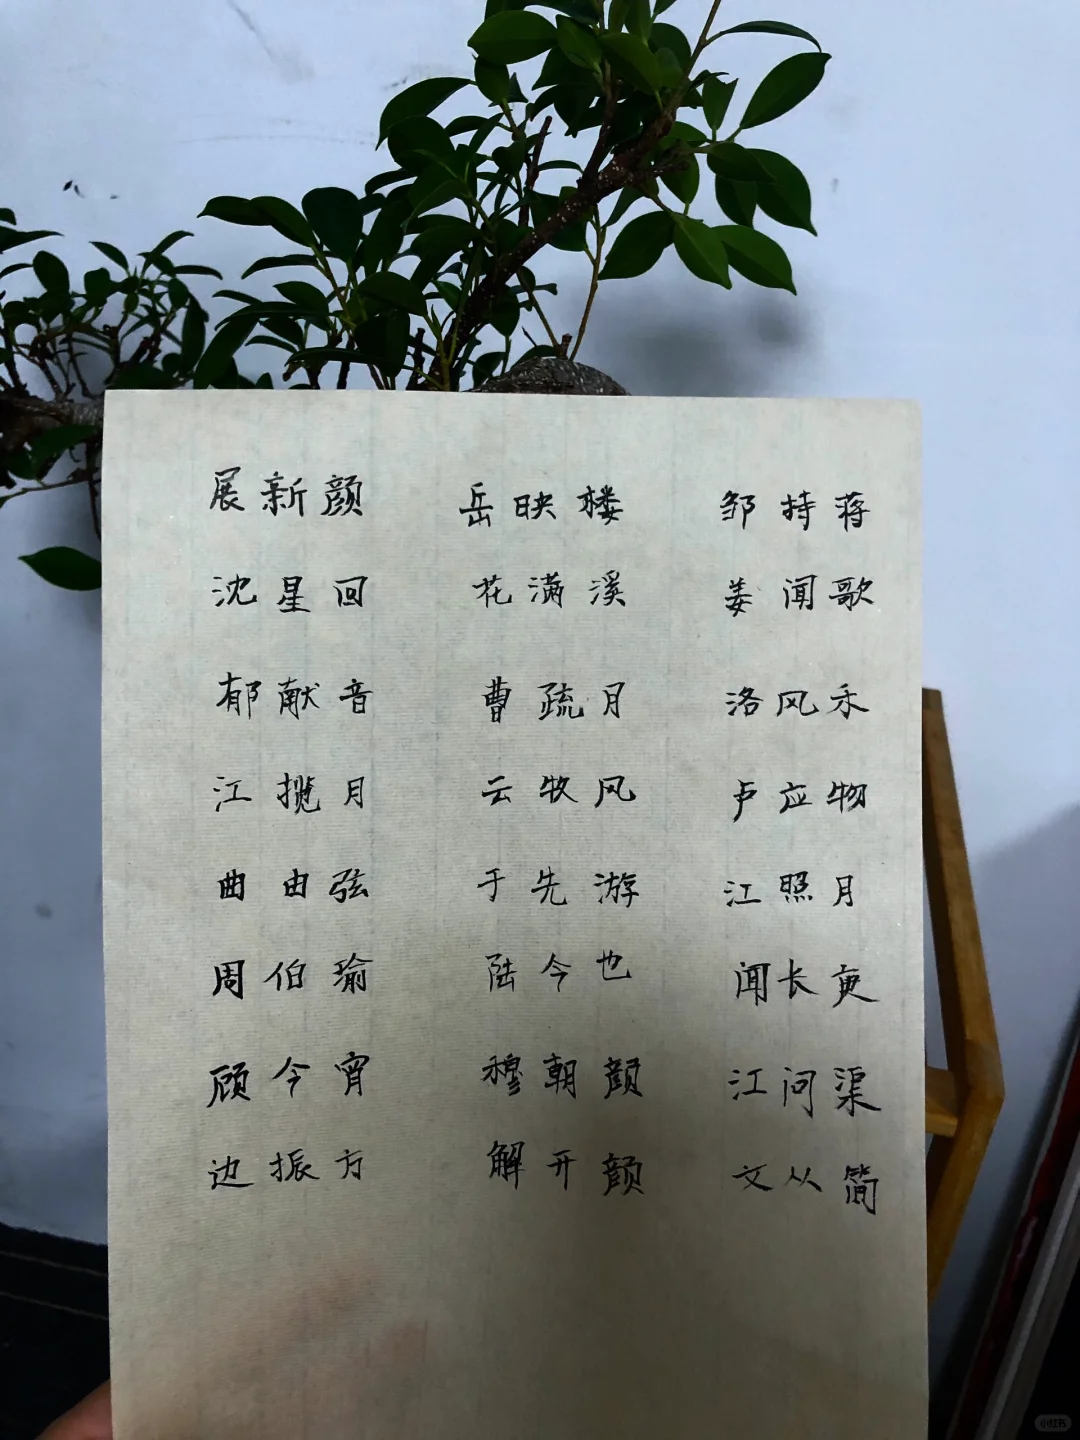 展新颜 岳映楼 邹持蒋
沈星回 花满溪 姜闻歌
郁献音 曹疏月 洛风禾
江揽月 云牧风 卢应物
曲由弦 于先游 江照月
周伯瑜 陆今也 闻长更
顾今宵 穆朝颜 江问渠
边振方 解开颜 文从简
小红书